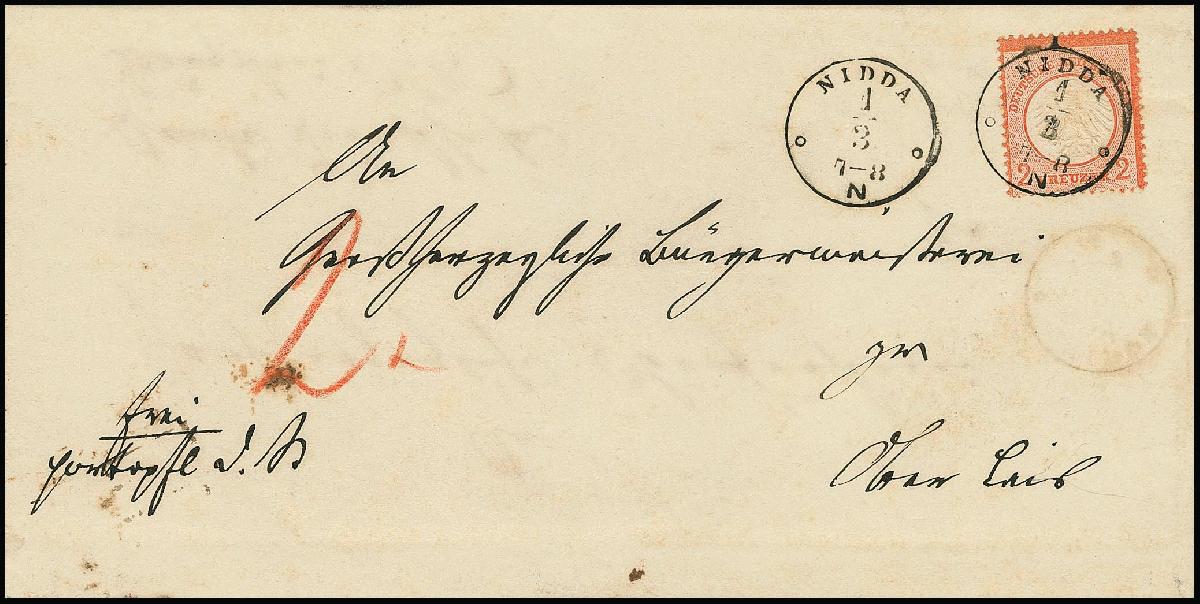 NIDDA
1
3
7-8
N.
NIDDA
1
3
7-8
N
2 KREUZER 2
An
Großherzogliche Bürgermeisterei
2
zu
Ober Lais
frei
portopfl d. S